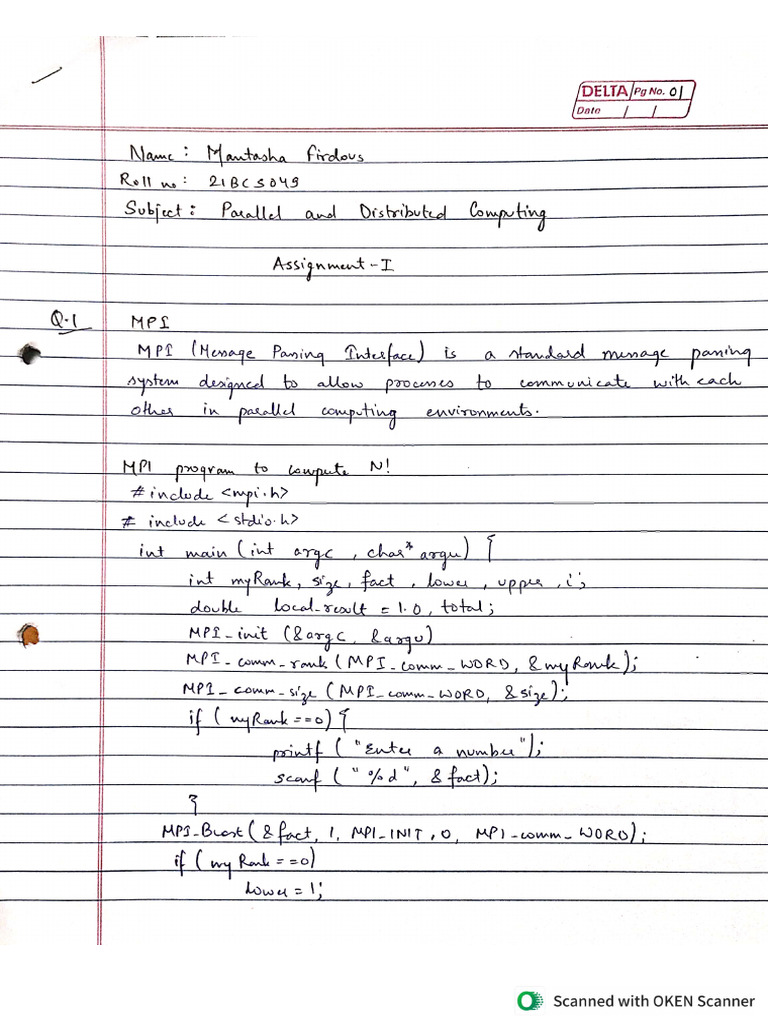 DELTA Pg No. 01
Date / /
Name : Mantasha Firdous
Roll no : 21BCS049
Subject : Parallel and Distributed Computing
Assignment - I
Q.1 MPI
MPI (Message Passing Interface) is a standard message passing
system designed to allow processes to communicate with each
other in parallel computing environments.
MPI program to compute N!
# include <mpi.h>
# include <stdio.h>
int main (int argc , char* argv) {
int myRank, size, fact , lower , upper , i ;
double local_result = 1.0 , total;
MPI_init (&argc, &argv)
MPI_comm_rank (MPI_comm_WORD, &myRank);
MPI_comm_size (MPI_comm_WORD, &size);
if ( myRank == 0) {
printf ( "Enter a number");
scanf ( "%d", &fact);
}
MPI_Bcast (&fact, 1, MPI_INIT , 0, MPI_comm_WORD);
if ( my Rank == 0)
lower = 1;
Scanned with OKEN Scanner